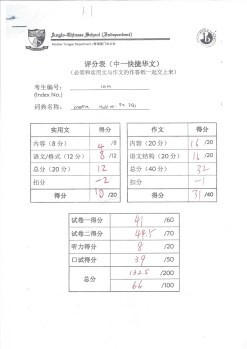 Anglo-Chinese School (Independent)
评分表（中一快捷华文）
（必须和实用文与作文的作答纸一起交上来）
考生编号：
(Index No.)
词典名称：
实用文 得分
内容（8 分） 4 /8
语文/格式（12 分） 8 /12
总分（20 分） 12
扣分 -2
得分 10 /20
作文 得分
内容（20 分） 16 /20
语文结构（20 分） 16 /20
总分（40 分） 32
扣分 -1
得分 31 /40
试卷一得分 41 /60
试卷二得分 44.5 /70
听力得分 8 /20
口试得分 39 /50
总分 132.5 /200
66 /100